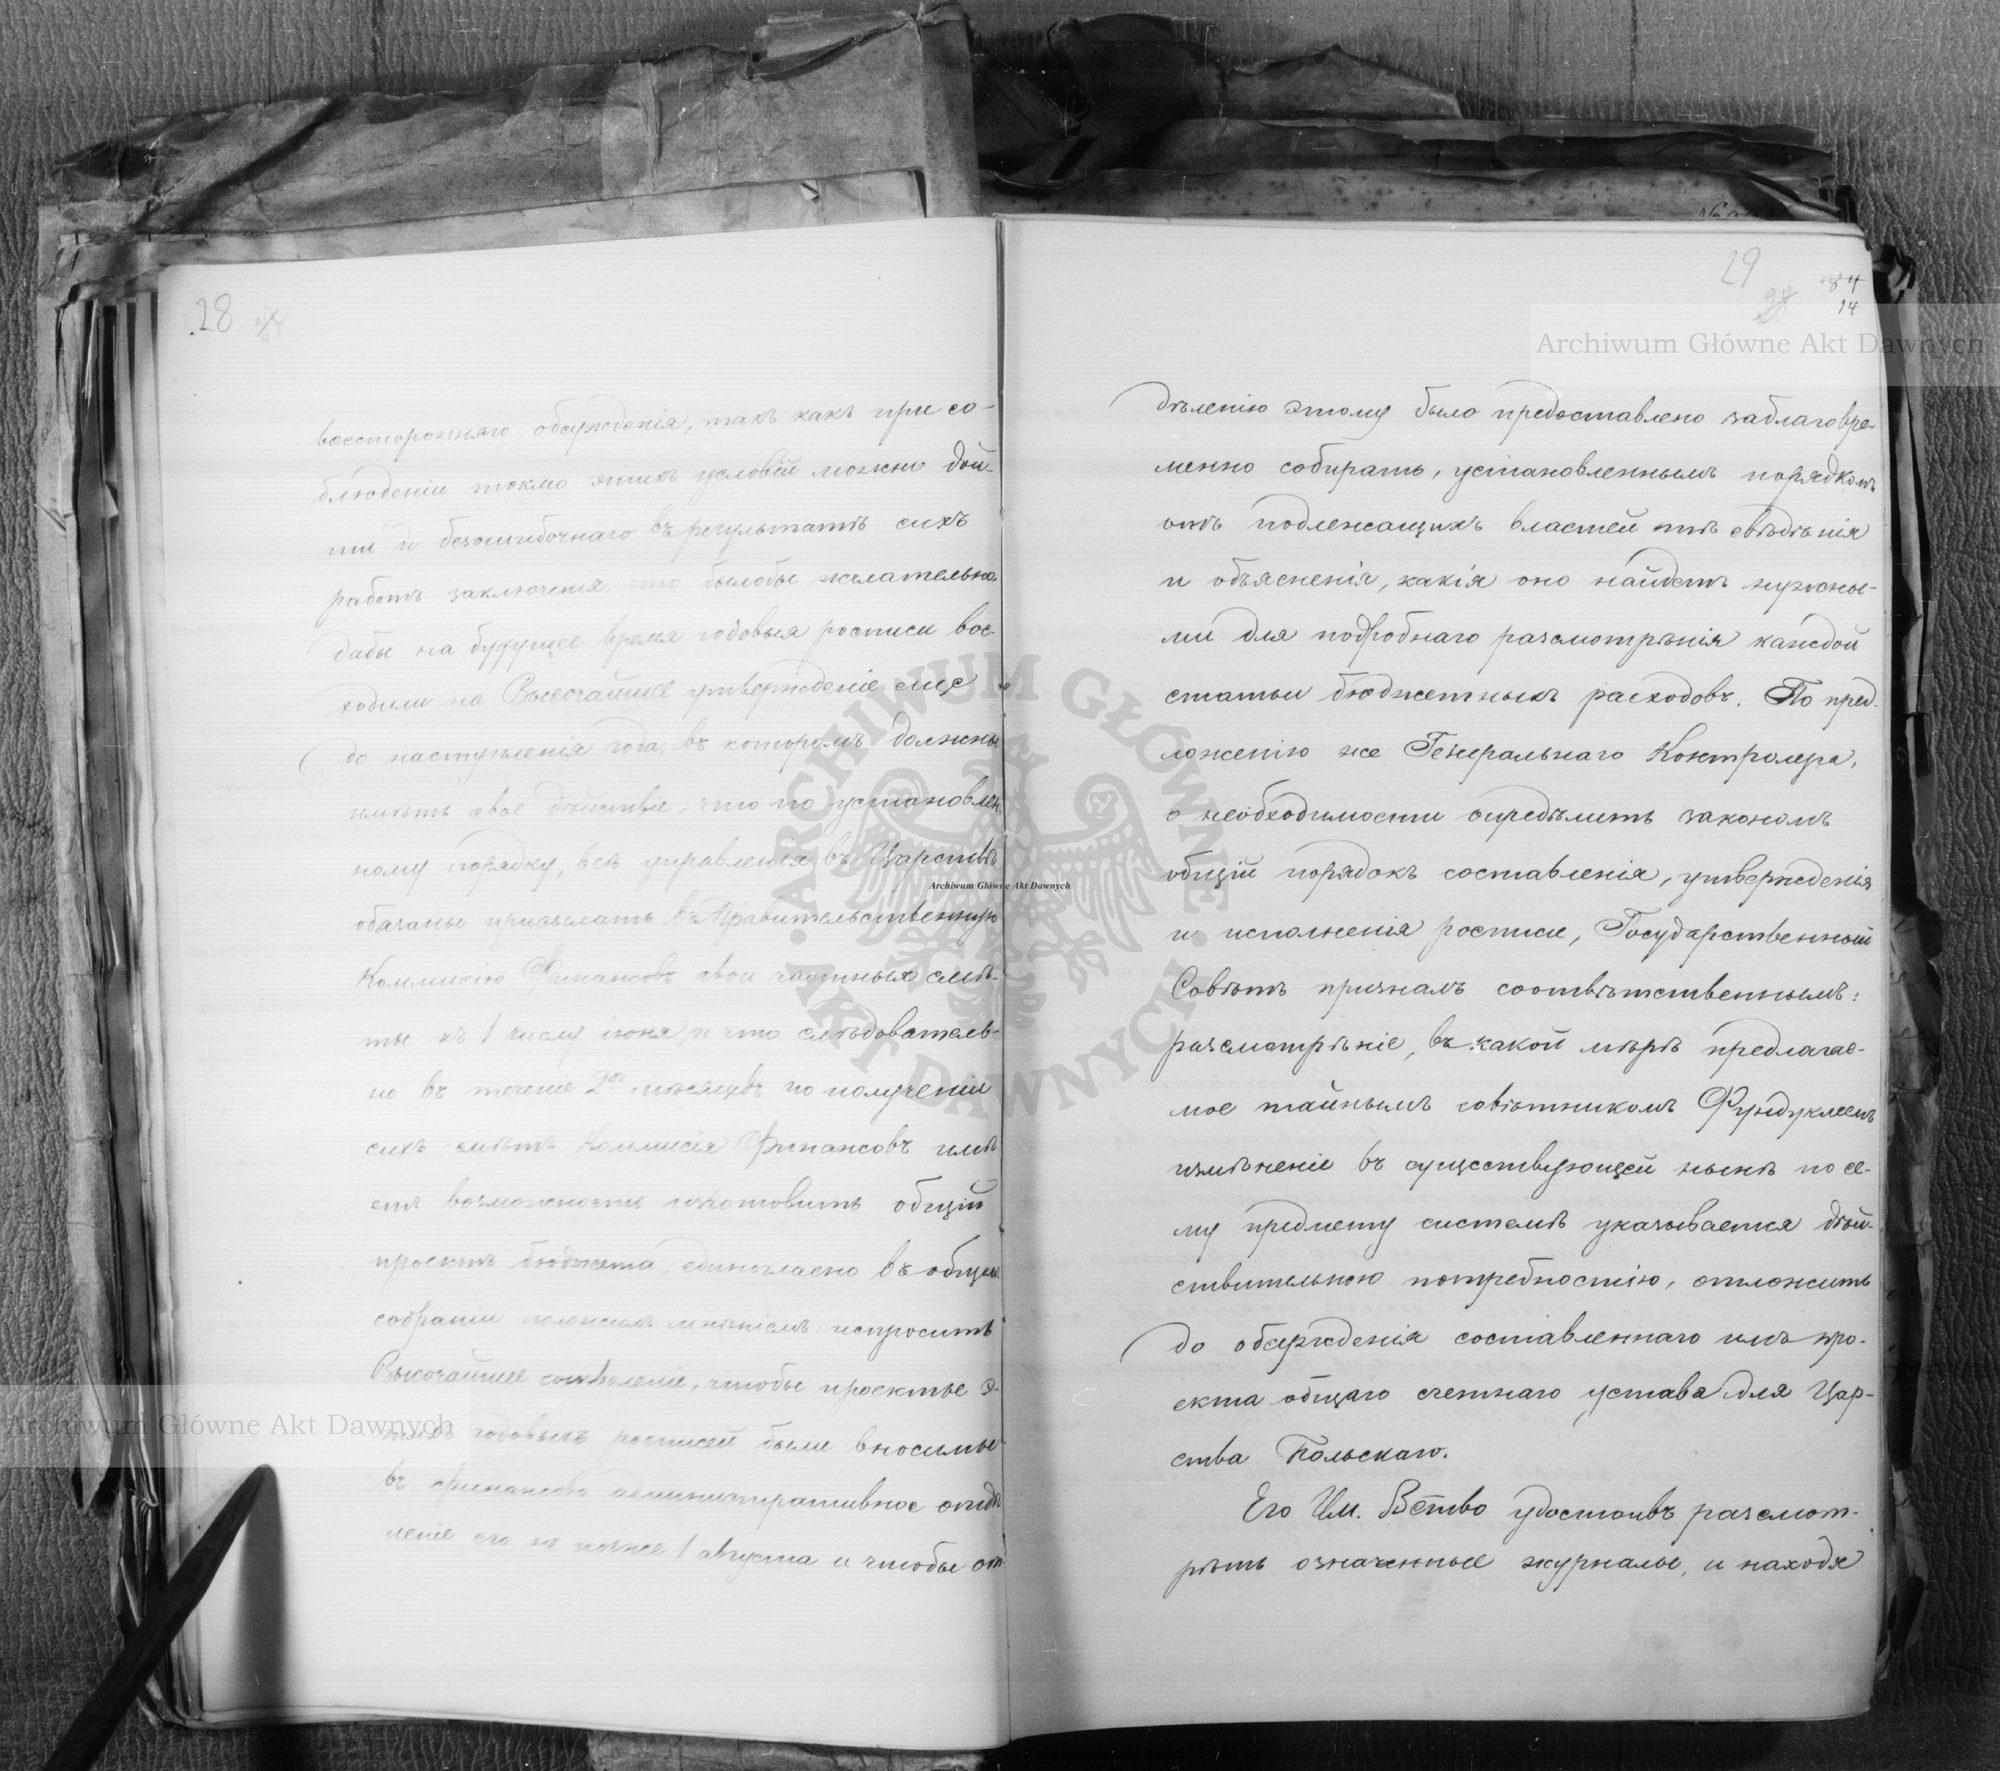 28
всесторонняго обсужденія, такъ какъ при со-
блюденіи токмо этихъ условій можно дой-
ти до безошибочнаго въ результатѣ сихъ
работъ заключенія, что былобы желательно,
дабы на будущее время годовыя росписи вос-
ходили на Высочайшее утвержденіе еще
до наступленія года, въ которомъ должны
имѣть свое дѣйствіе; что по установлен-
ному порядку, всѣ управленія въ Царствѣ
обязаны присылать въ Правительственную
Коммисію Финансовъ свои частныя смѣ-
ты къ 1 числу іюня, и что слѣдователь-
но въ теченіе 2хъ мѣсяцевъ по полученіи
сихъ смѣтъ Коммисія Финансовъ имѣ
етъ возможность изготовить общій
проектъ бюджета, единогласно въ общемъ
собраніи положилъ мнѣніемъ: испросить
Высочайшее соизволеніе, чтобы проекты э-
тихъ годовыхъ росписей были вносимы
въ финансово административное отдѣ
леніе его не позже 1 августа и чтобы от-
29
84
28
14
дѣленію этому было предоставлено заблаговре-
менно собирать, установленнымъ порядкомъ
отъ подлежащихъ властей тѣ свѣдѣнія
и объясненія, какія оно найдетъ нужны-
ми для подробнаго разсмотрѣнія каждой
статьи бюджетныхъ расходовъ. По пред-
ложенію же Генеральнаго Контролера,
о необходимости опредѣлить закономъ
общій порядокъ составленія, утвержденія
и исполненія росписи, Государственный
Совѣтъ призналъ соотвѣтственнымъ:
разсмотрѣніе, въ какой мѣрѣ предлагае-
мое тайнымъ совѣтникомъ Фундуклеемъ
измѣненіе въ существующей нынѣ по се-
му предмету системѣ указывается дѣй-
ствительною потребностію, отложить
до обсужденія составленнаго имъ про-
екта общаго счетнаго устава для Цар-
ства Польскаго.
Его Им. Вство удостоивъ разсмот-
рѣть означенные журналы, и находя
Archiwum Główne Akt Dawnych
Archiwum Główne Akt Dawnych
Archiwum Główne Akt Dawnych
ARCHIWUM GŁÓWNE AKT DAWNYCH